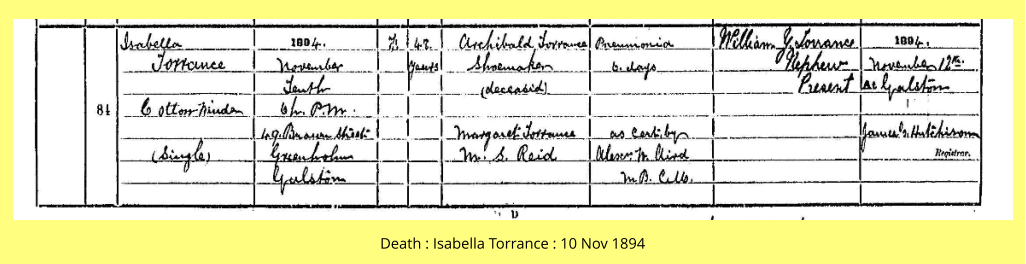 84
Isabella
Torrance
Cotton Winder
(Single)
1894.
November
Tenth
6h. P.M.
49 Brown Street
Greenholm
Galston
F.
47
Years
Archibald Torrance
Shoemaker
(deceased)
Margaret Torrance
M. S. Reid
Pneumonia
6. days
as Cert. by
Alexr. W. Aird
M.B. C.M.
William G. Torrance
Nephew
Present
1894.
November 12th.
At Galston
Hutchison
Registrar.
Death : Isabella Torrance : 10 Nov 1894